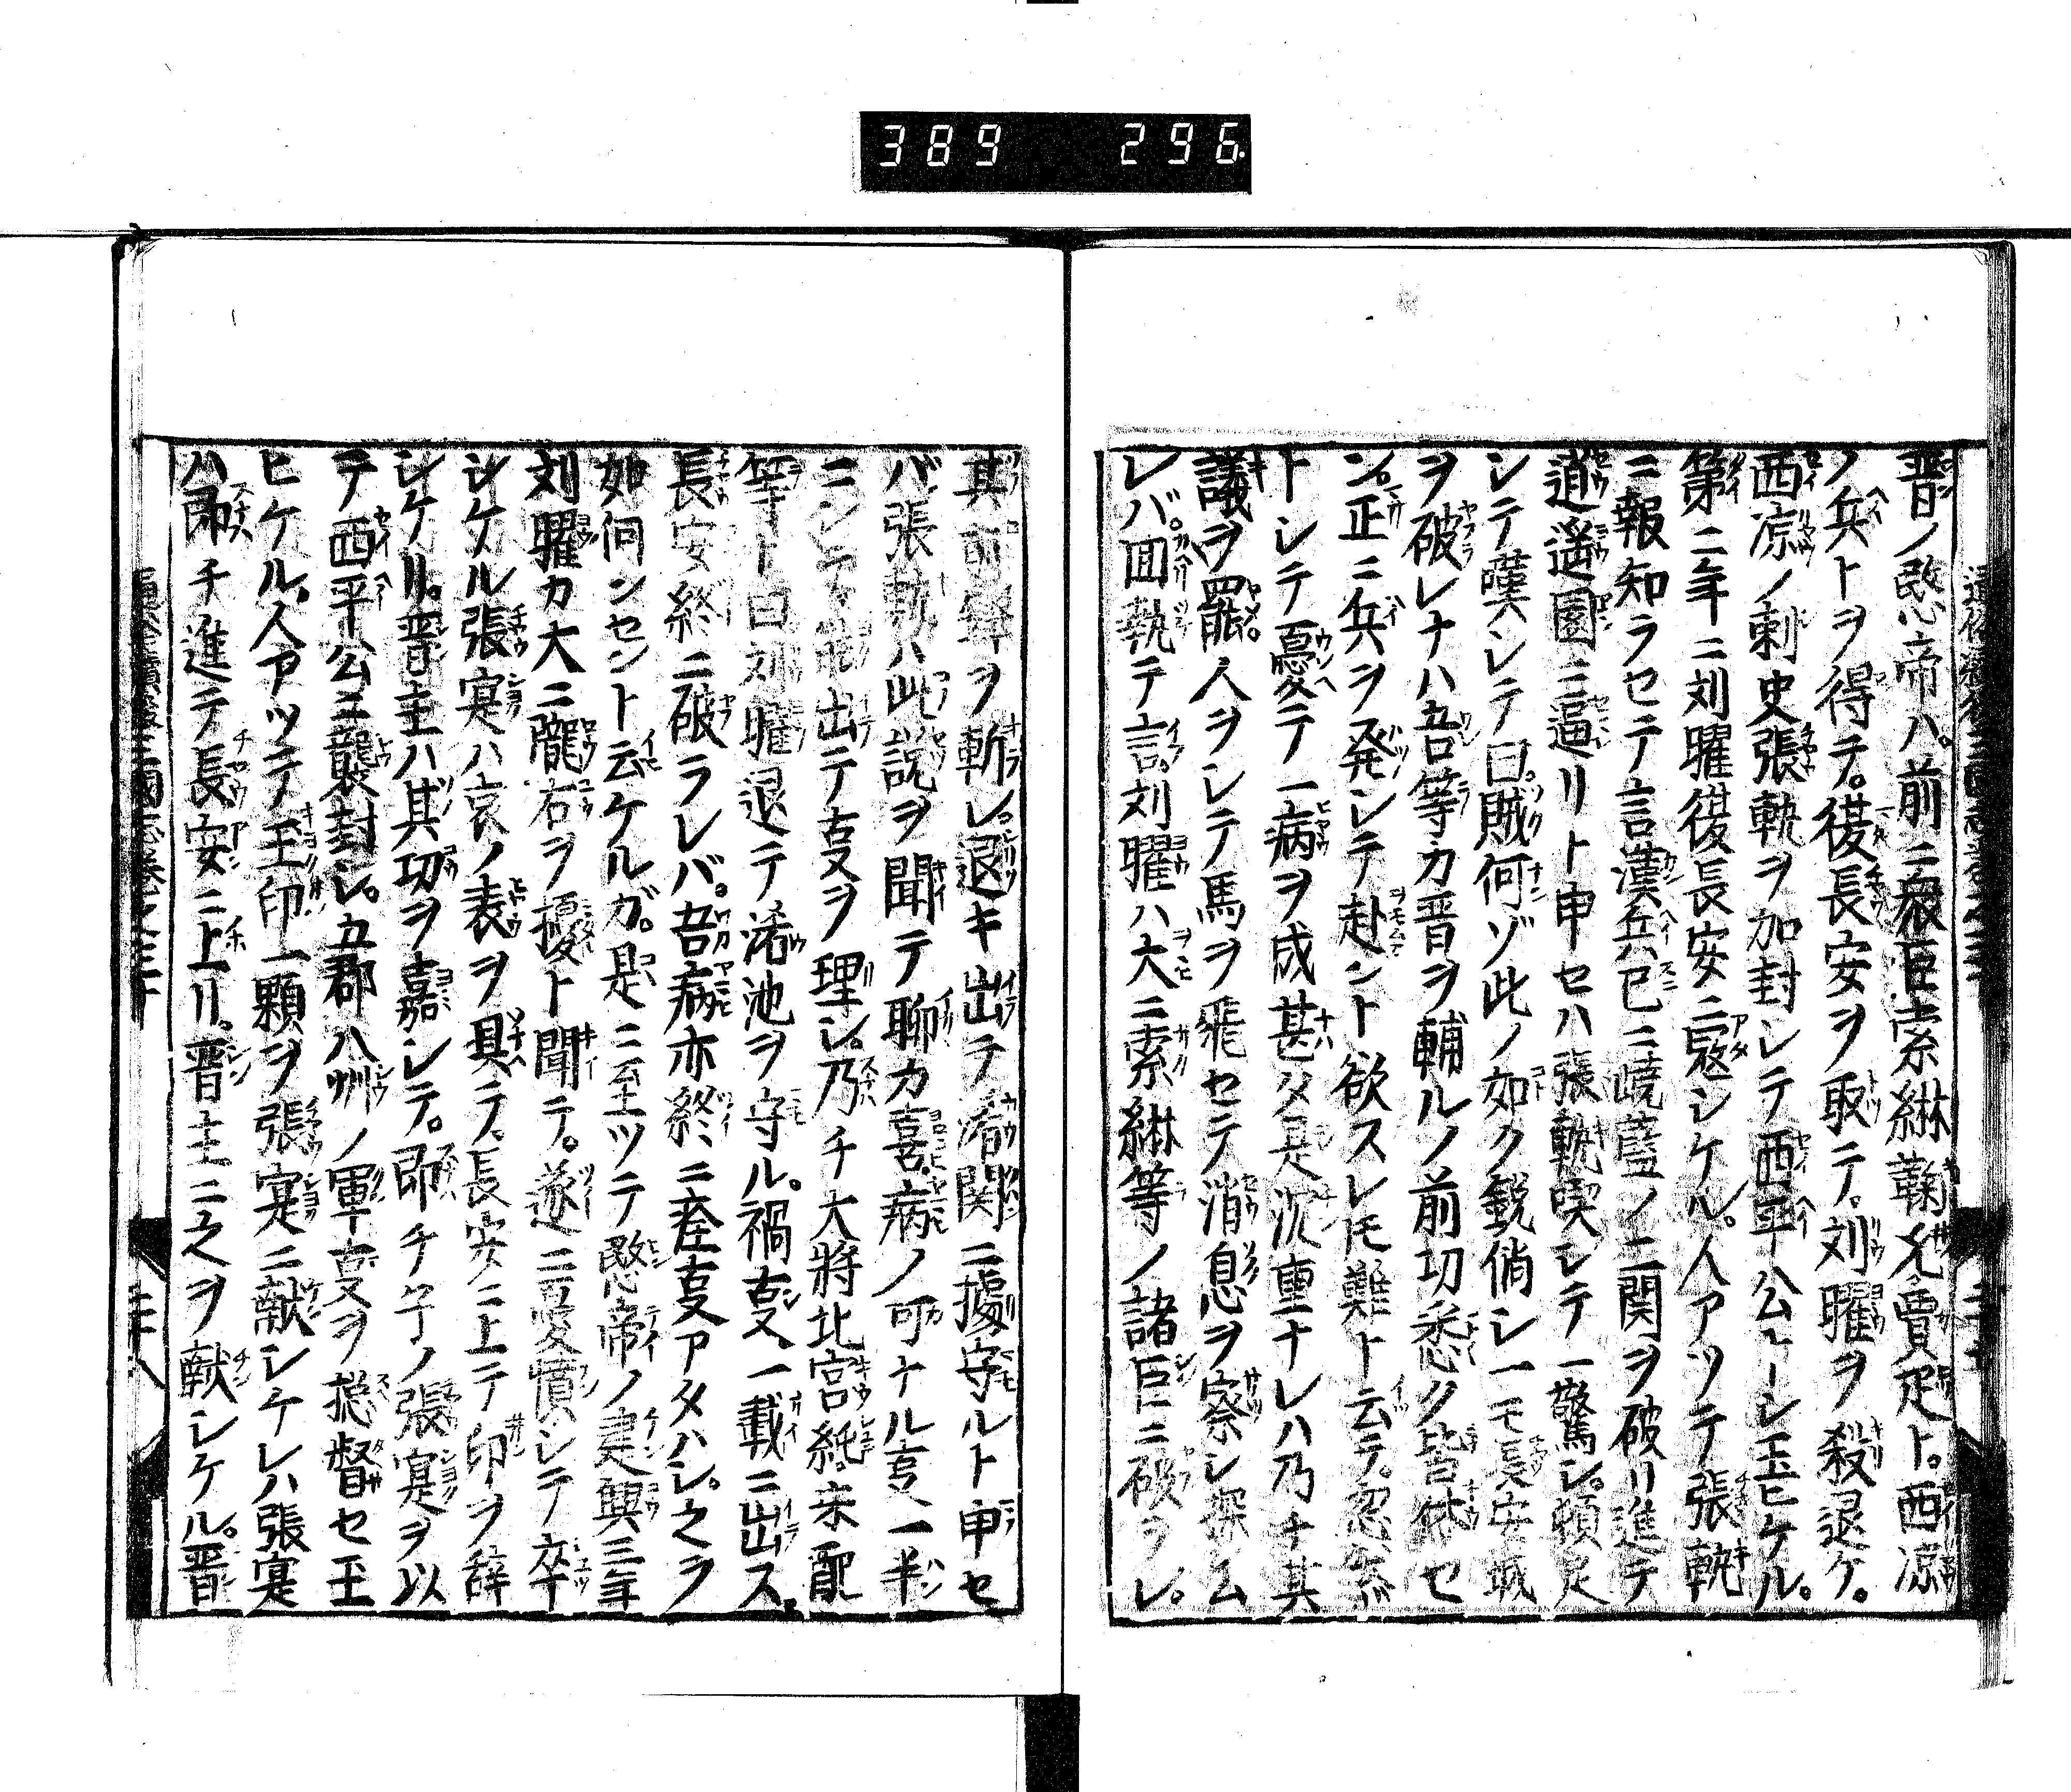 389 296
晋ノ愍帝ハ。前ニ衆臣索綝鞠允賈疋ト。西凉
ノ兵トヲ得テ。復長安ヲ取テ。刘曜ヲ殺退ケ。
西凉ノ刺史張軌ヲ加封シテ西平公トシ玉ヒケル。
第二年ニ刘曜復長安ニ寇シケル。人アツテ張軌
ニ報知ラセテ言漢兵已ニ嶢藍ノ二関ヲ破リ進テ
逍遥園ニ逼リト申セハ張軌喫シテ一驚シ。頓足
シテ嘆シテ曰。賊何ゾ此ノ如ク鋭俏シ一モ長安城
ヲ破レナハ吾等カ晋ヲ輔ルノ前功悉ク皆休セ
ン。正ニ兵ヲ発シテ赴ント欲スレモ難ト云テ。
トシテ憂テ一病ヲ成甚タ是沉重ナレハ乃ナ其
議ヲ罷。人ヲシテ馬ヲ飛セテ消息ヲ察シ探ム
レバ。囬執テ言刘曜ハ大ニ索綝等ノ諸臣ニ破ラレ。
其前鋒ヲ斬レ。退キ出テ潼関ニ據守ルト申セ
バ張軌ハ此説ヲ聞テ聊カ喜。病ノ可ナル㕝一半
ニシテ能出テ㕝ヲ理シ。乃チ大將北宮純宋配
等ト曰刘曜退テ澠池ヲ守ル。禍㕝一載ニ出ス。
長安終ニ破ラレバ。吾病亦終ニ痊㕝アタハシ。之ヲ
如何ンセント云ケルガ。是ニ至ツテ愍帝ノ建興三年
刘曜カ大ニ隴右ヲ擾ト聞テ。遂ニ憂憤シテ卒
シケル張寔ハ哀ノ表ヲ具テ。長安ニ上テ印ヲ辞
シケリ。晋主ハ其功ヲ嘉シテ。即チ子ノ張寔ヲ以
テ西平公ニ襲封シ。五郡八州ノ軍㕝ヲ揔督セ玉
ヒケル。人アツテ玉印一顆ヲ張寔ニ献シケレハ張寔
ハ即チ進テ長安ニ上リ。晋主ニ之ヲ献シケル。晋
二十八